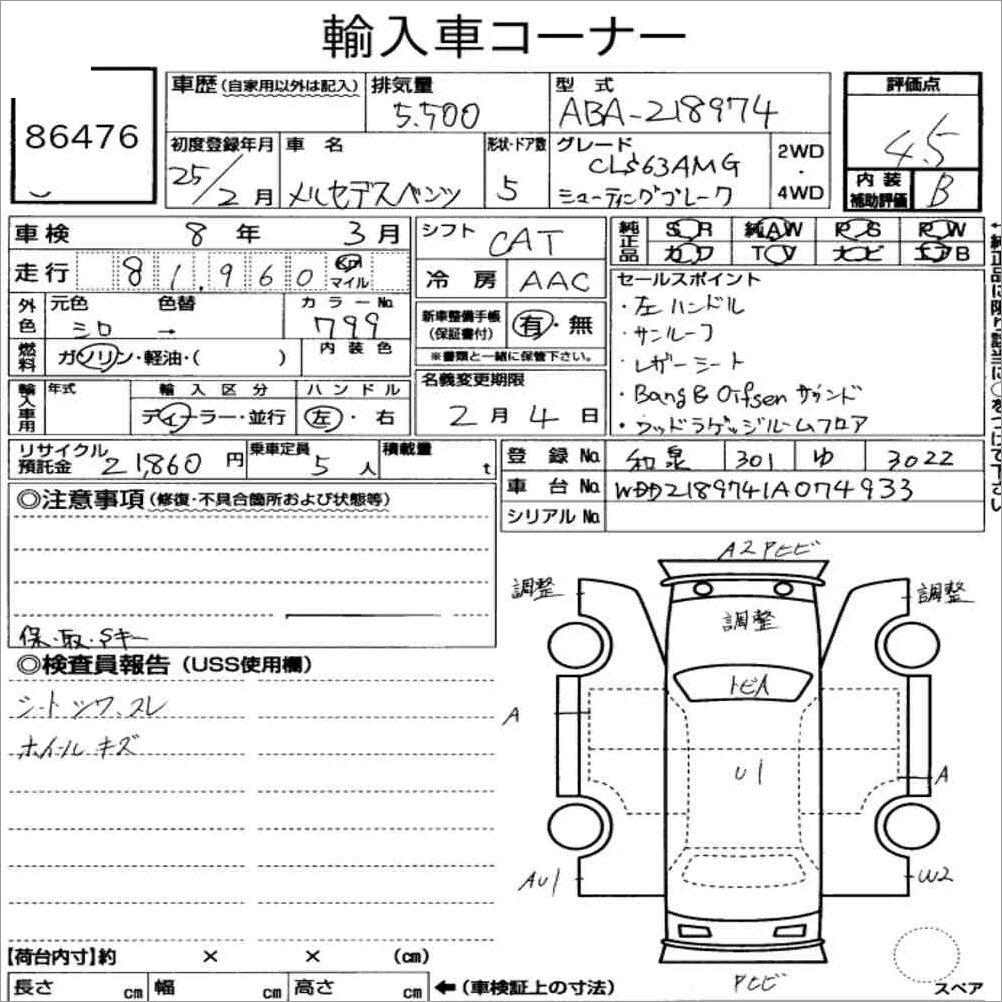 輸入車コーナー
86476
車歴(自家用以外は記入) 排気量 5.500 型式 ABA-218974 評価点 4.5
初度登録年月 25/2月 車名 メルセデスベンツ 形状・ドア数 5 グレード CLS63AMG シューティングブレーク 2WD・4WD 内装補助評価 B
車検 8年 3月 シフト CAT 純正品 SR 純AW PS PW
走行 81,960 Km マイル 冷房 AAC カワ TV ナビ エアB
外色 元色 シロ 色替 → カラーNo. 799 新車整備手帳(保証書付) 有・無
※書類と一緒に保管下さい。
燃料 ガソリン・軽油・( ) 内装色
セールスポイント
・左ハンドル
・サンルーフ
・レザーシート
・Bang&Olfsenサウンド
・ウッドラゲッジルームフロア
輸入車用 年式 輸入区分 ディーラー・並行 ハンドル 左・右 名義変更期限 2月4日
リサイクル預託金 21,860円 乗車定員 5人 積載量 t 登録No. 和泉 301 ゆ 3022
車台No. WDD2189741A074933
シリアルNo.
◎注意事項(修復・不具合箇所および状態等)
保・取・Sキー
◎検査員報告(USS使用欄)
シートシワ、スレ
ホイールキズ
A2Pヒビ
調整
調整
調整
トビA
A
U1
A
AU1
W2
Pヒビ
スペア
【荷台内寸】約 × × (cm)
長さ cm 幅 cm 高さ cm ←(車検証上の寸法)